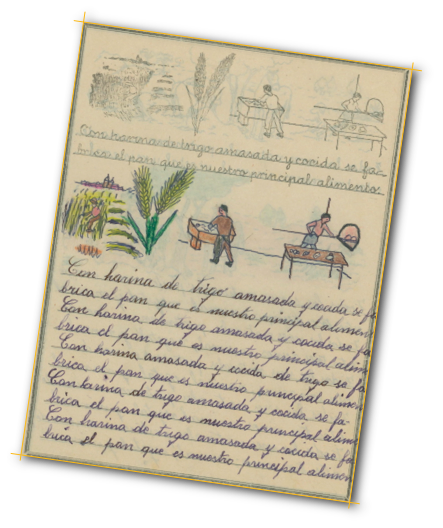 Con harina de trigo amasada y cocida se fa-
brica el pan que es nuestro principal alimento.
Con harina de trigo amasada y cocida se fa
brica el pan que es nuestro principal alimen
Con harina de trigo amasada y cocida se fa
brica el pan que es nuestro principal alim
Con harina amasada y cocida de trigo se fa
brica el pan que es nuestro principal alimen
Con harina de trigo amasada y cocida se fa-
brica el pan que es nuestro principal alim
Con harina de trigo amasada y cocida se fa
brica el pan que es nuestro principal alimen